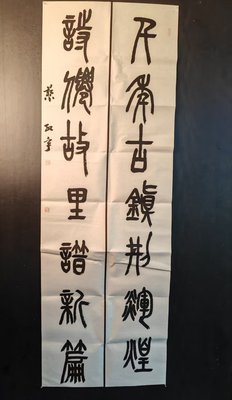 千年古鎮刱煇煌
詩僊故里譜新篇
蔡